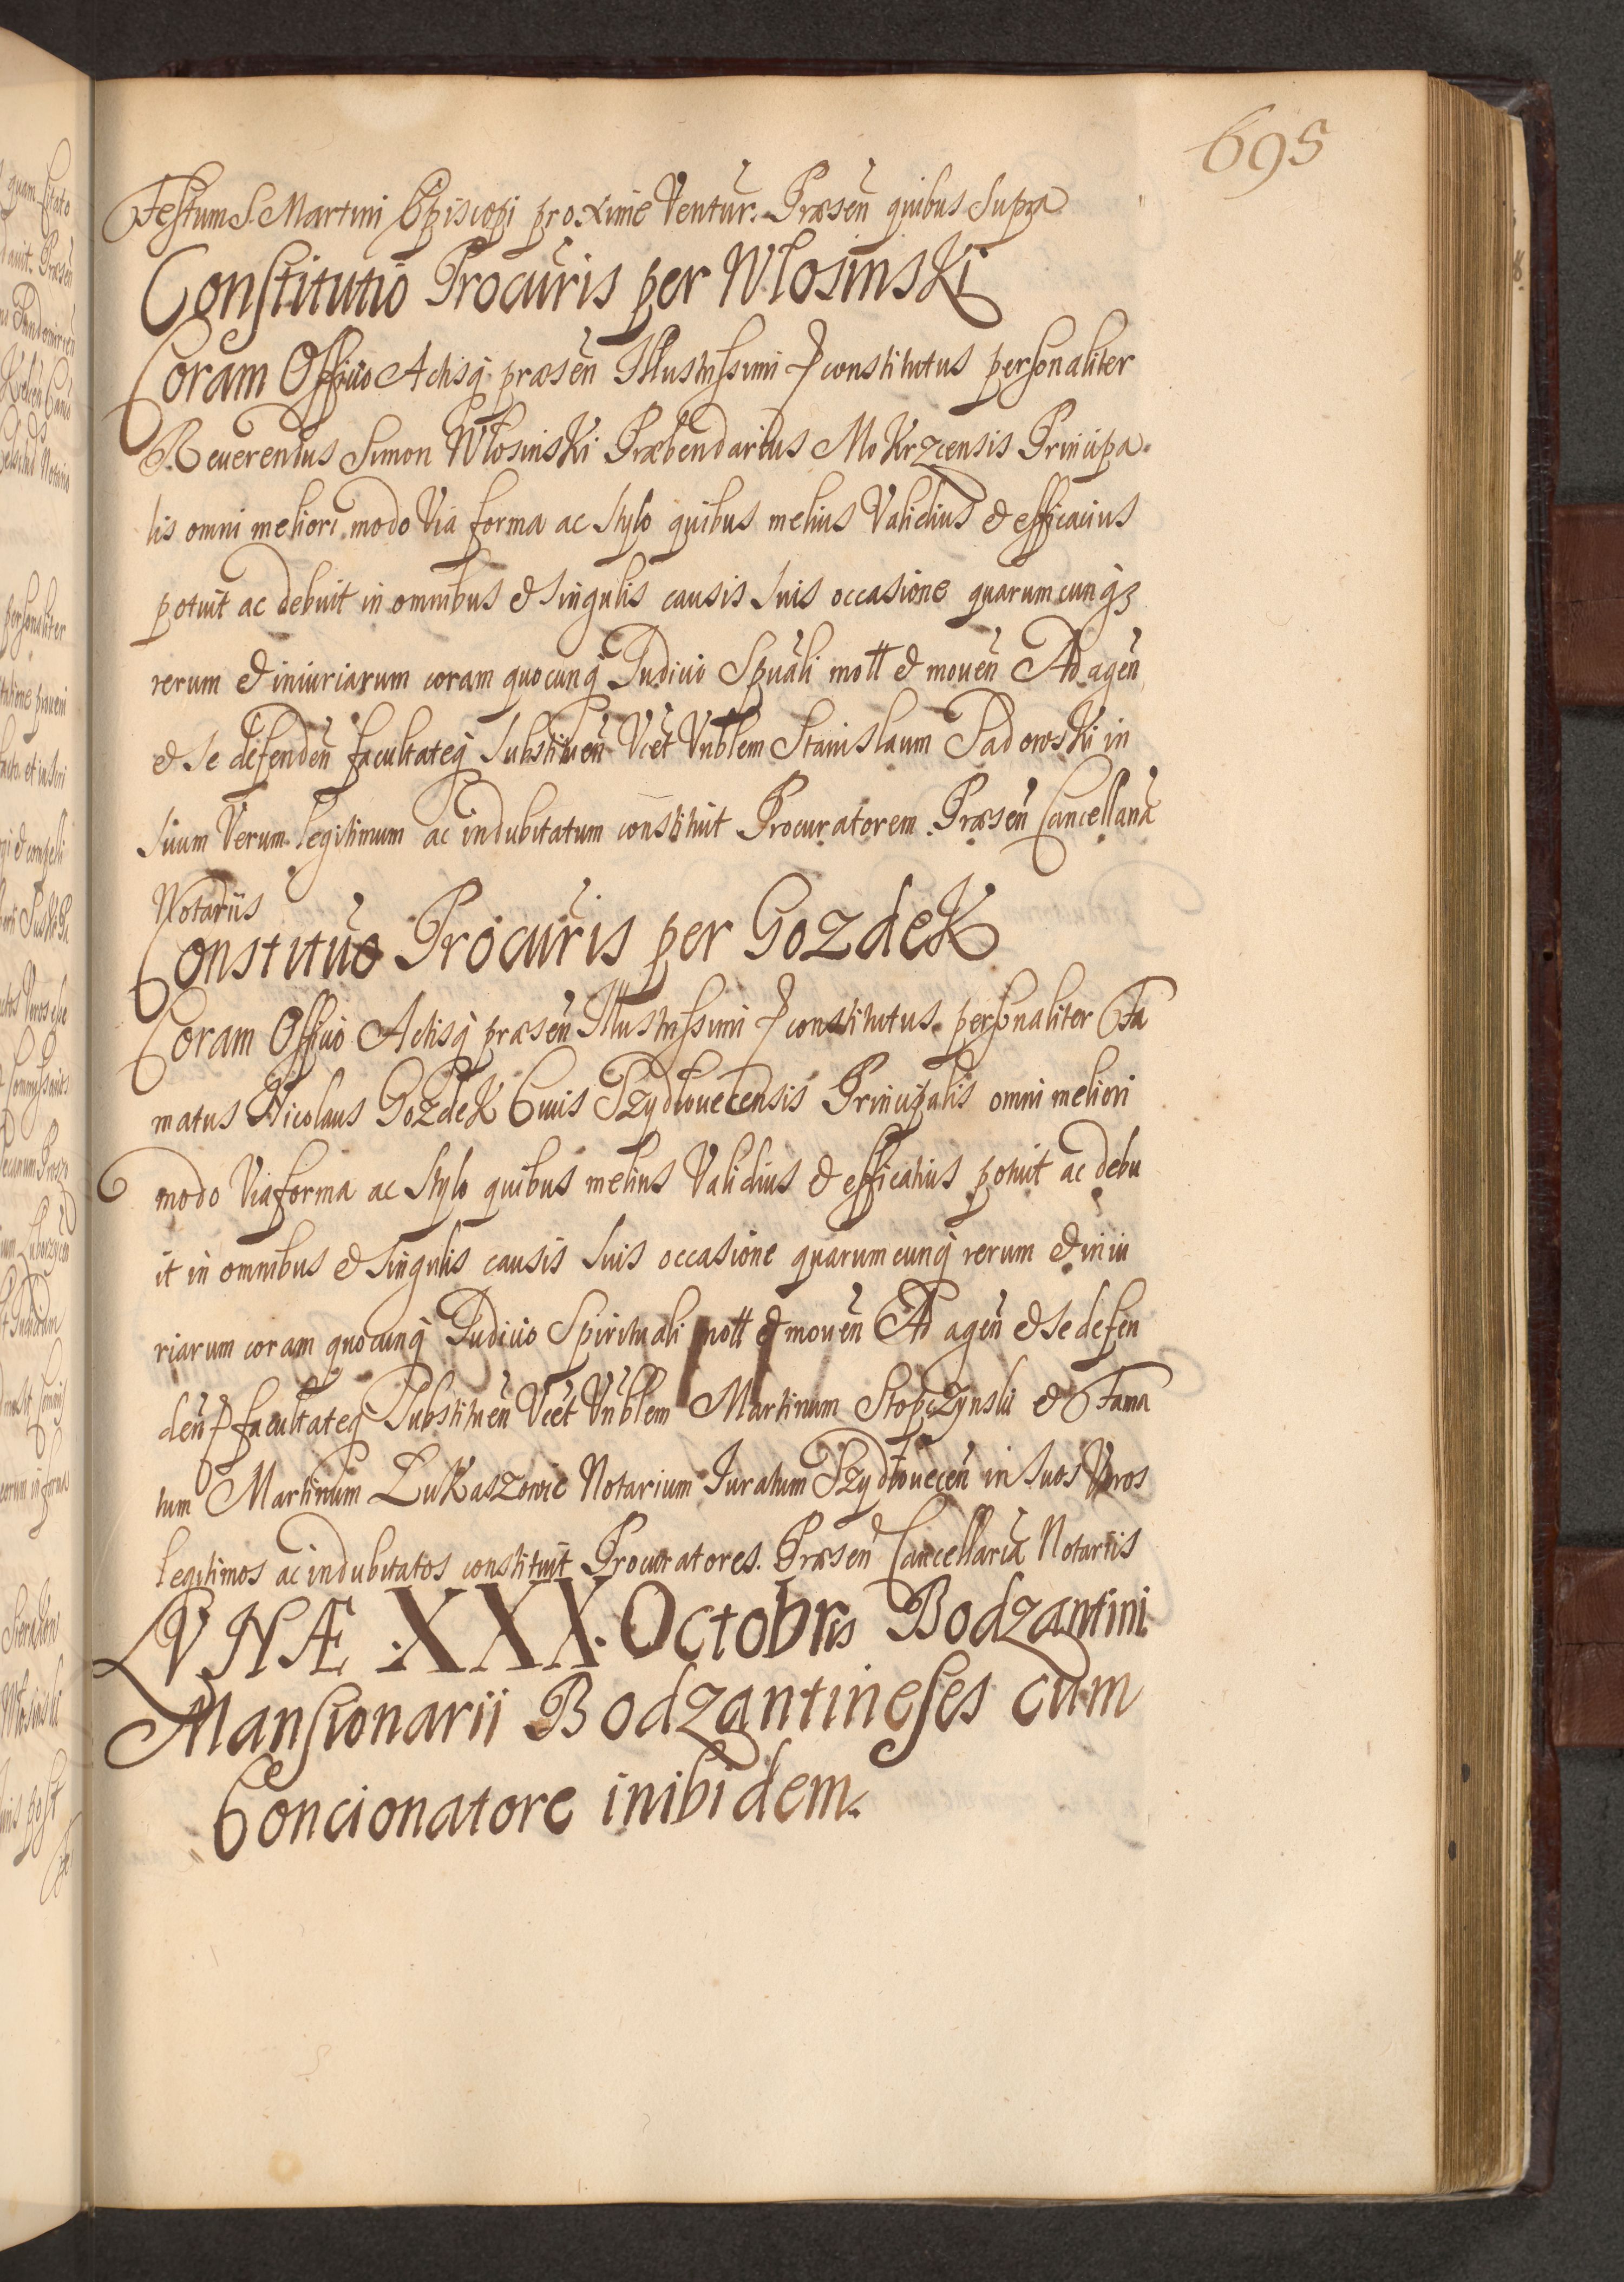 695
Festum S. Martini Episcopi proxime Ventur. Præsen̄ quibus Supra
Constitutio Procuris per Wlosinski
Coram Officio Actisq̨ præsen̄ Illustrissimi P constitutus personaliter
Reuerendus Simon Wlosinski Præbendarius Mokrzcensis Principa-
lis omni meliori modo Via forma ac Stylo quibus melius Validius & efficacius
potuit ac debuit in omnibus & Singulis causis Suis occasione quarumcunqꝫ
rerum & iniuriarum coram quocunq̨ Judicio Spuāli mott & mouen̄ Ad agen̄
& Se defenden̄ facultateq̨ Substituen̄ Vcet Vnblem Stanislaum Sadowski in
Suum Verum legitimum ac indubitatum constituit Procuratorem. Præsen̄ Cancellariæ
Notariis
Constitutio Procuris per Gozdek
Coram Officio Actisq̨ præsen̄ Illustrissimi P constitutus personaliter Fa
matus Nicolaus Gozdek Ciuis Szydlouecensis Principalis omni meliori
modo Via forma ac Stylo quibus melius Validius & efficatius potuit ac debu
it in omnibus & Singulis causis Suis occasione quarumcunq̨ rerum & iniu
riarum coram quocunq̨ Judicio Spirituali mott & mouen̄ Ad agen̄ & Se defen
den̄ facultateq̨ Substituen̄ Vcet Vnblem Martinum Stopczynski & Fama
tum Martinum Lukaszowic Notarium Juratum Szydlouecen̄ in Suos Veros
legitimos ac indubitatos constituit Procuratores. Præsen̄ Cancellariæ Notariis
LVNÆ XXX. Octobris Bodzantini.
Mansionarii Bodzantineses cum
Concionatore inibidem.